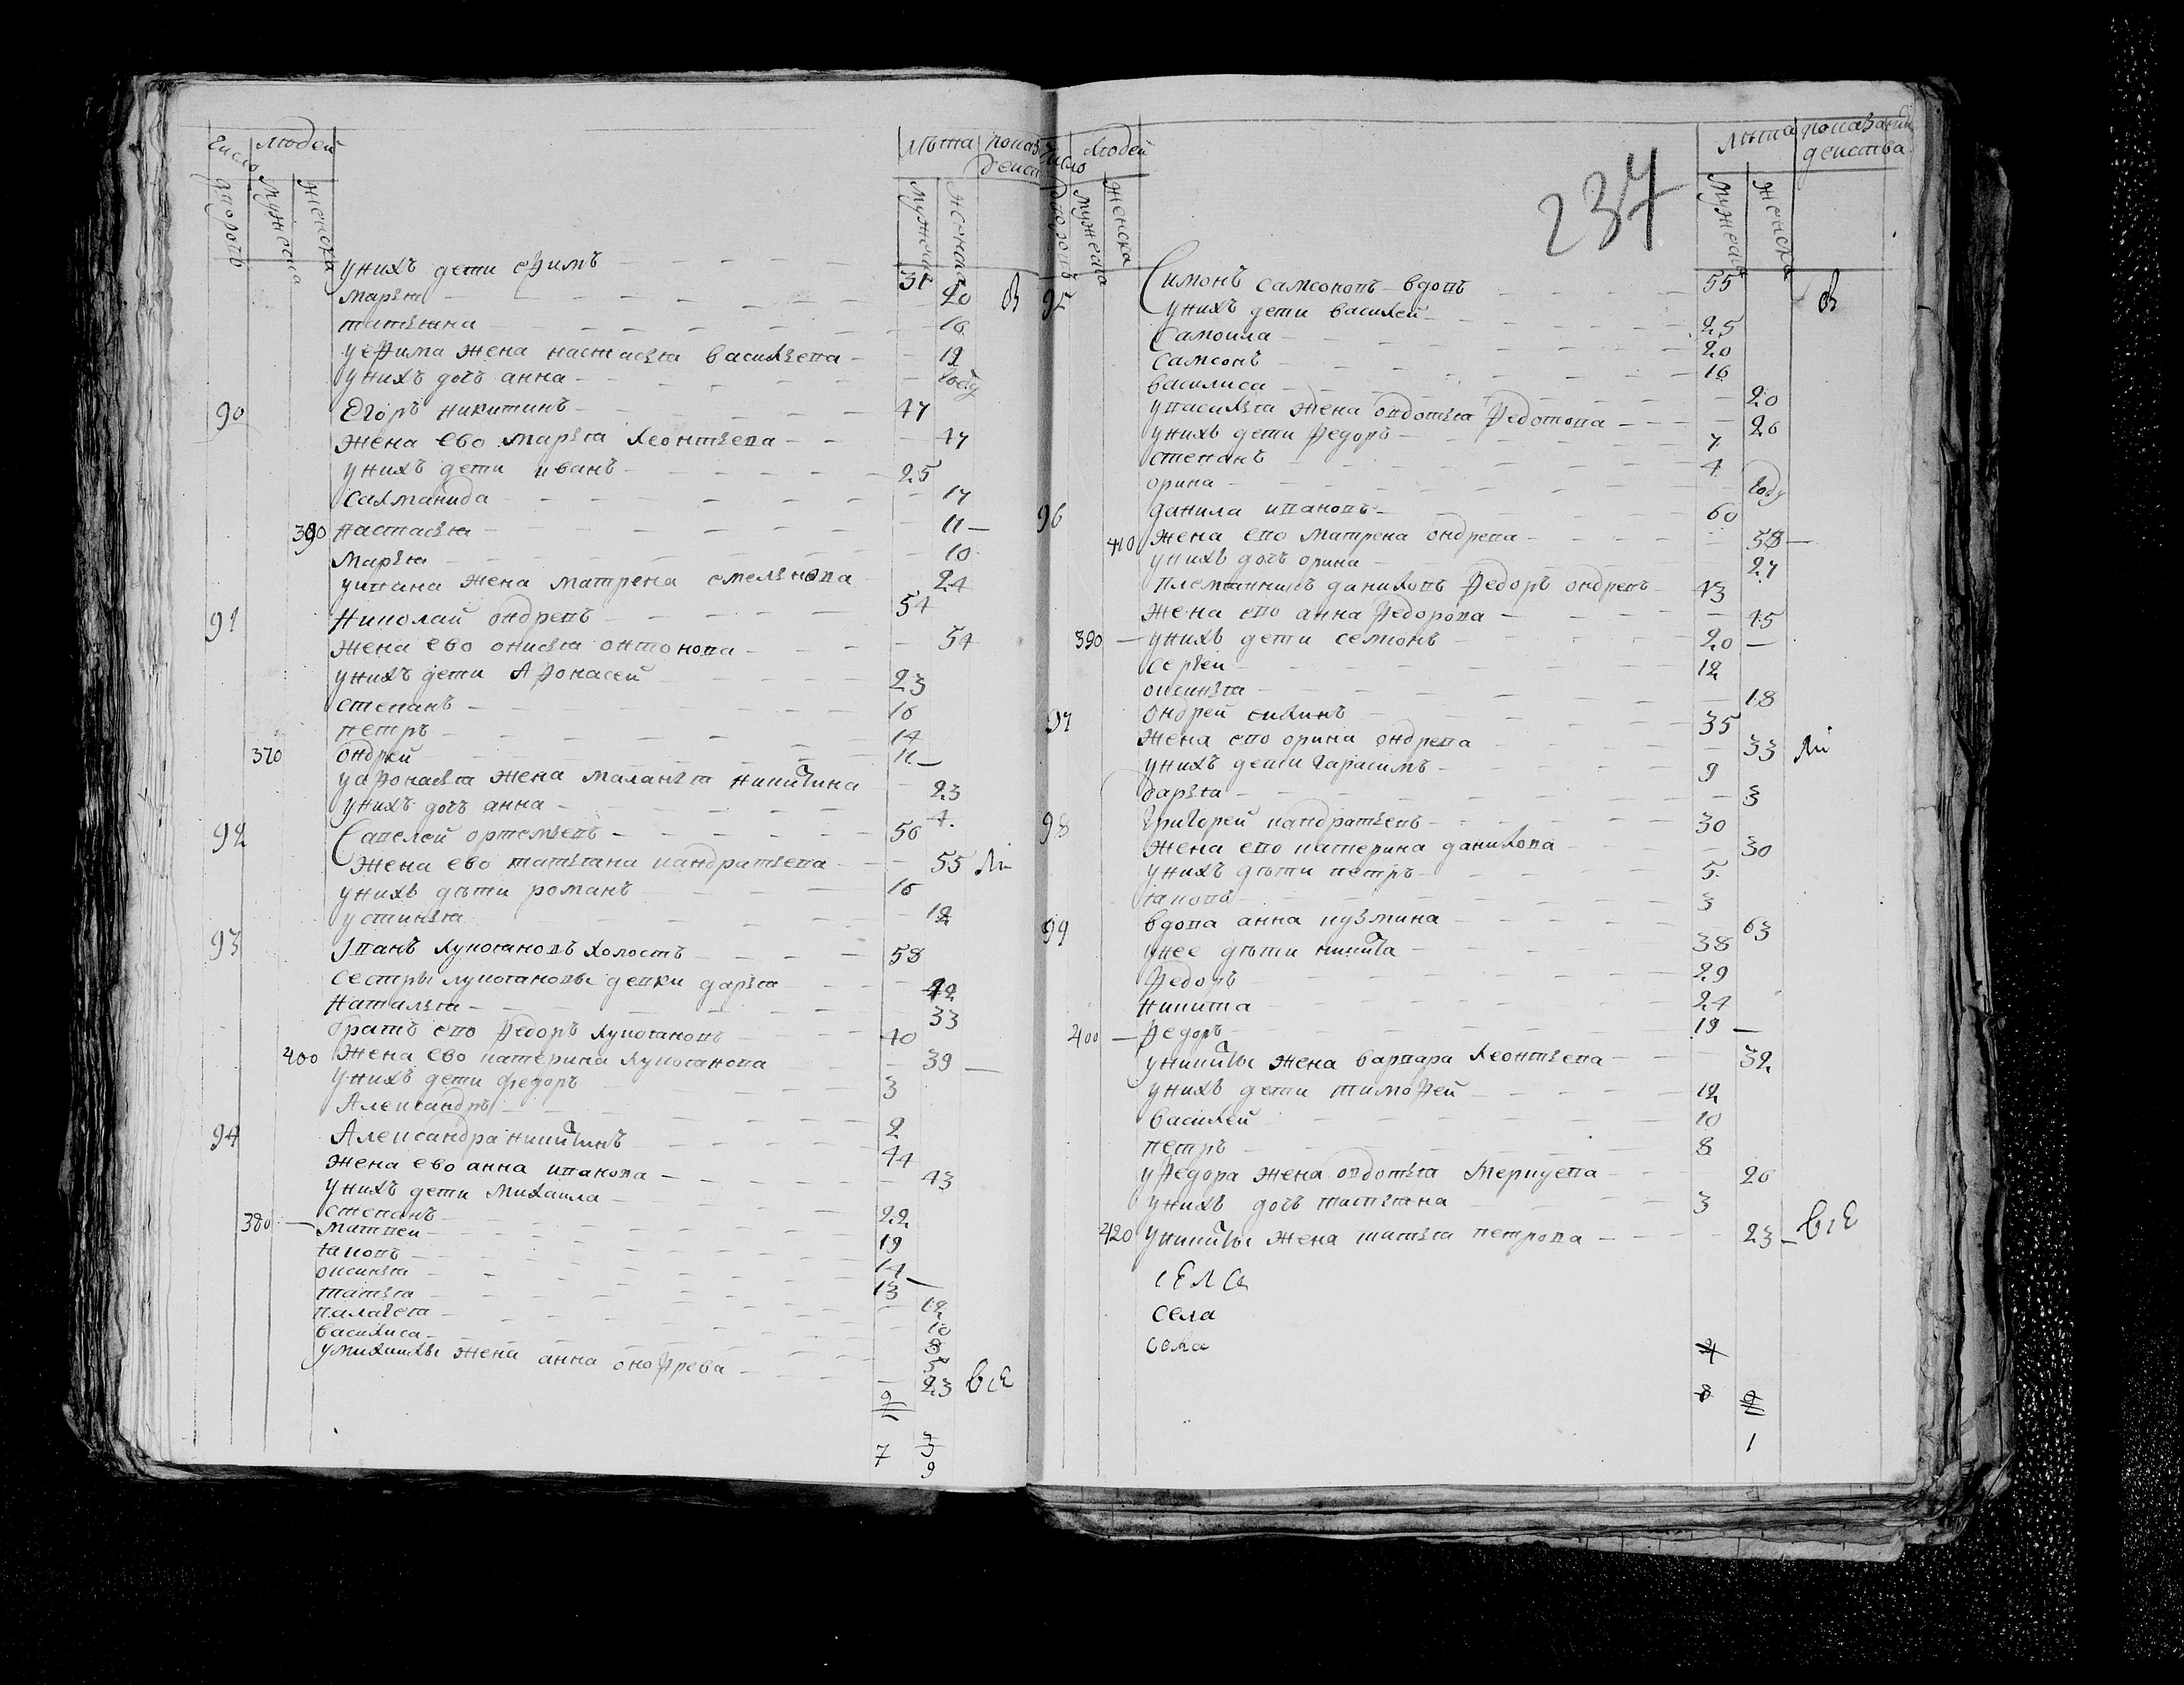 число дворовъ людей мужеска женска лѣта мужеска женска показ действ
у нихъ дети ефимъ 31
марья 20
татьяна 16
у ефима жена настасья васильева 19
у нихъ дочь анна году
90 Егоръ никитинъ 47
жена ево марья леонтьева 47
у нихъ дети иванъ 25
салманида 17
390 настасья 11
марья 10
у ивана жена матрена емельнова 24
91 николай ондревъ 54
жена ево онисья онтонова 54
у нихъ дети Афонасей 23
степанъ 16
петръ 14
370 ондрей 11
у афонасья жена маланья никитина 23
у нихъ дочь анна 4
92 Савелей ортемьевъ 56
жена ево татьяна кандратьева 55
у нихъ дѣти романъ 16
устинья 12
93 Иванъ лукояновъ холостъ 58
сестры лукояновы девки дарья 42
наталья 33
братъ ево федоръ лукояновъ 40
400 жена ево катерина лукоянова 39
у нихъ дети федоръ 3
Александръ 2
94 Александра никитинъ 44
жена ево анна иванова 43
у нихъ дети михаила 22
степанъ 19
380 матвеи 14
яковъ 13
оксинья 12
татья 10
палагея 8
василиса
у михаилы жена анна онофрева 23 все
9
7 9
237
число дворовъ людей мужеска женска лѣта мужеска женска показании действа
95 Симонъ самсоновъ вдовъ 55
у нихъ дети василей 25
Самоила 20
самсонъ 16
василиса 20
у василья жена овдотья федотова 26
у нихъ дети федоръ 7
степанъ 4
орина году
96 данила ивановъ 60
410 жена ево матрена ондрева 58
у нихъ дочь орина 27
племянникъ даниловъ федоръ ондревъ 43
жена ево анна федорова 45
390 у нихъ дети семионъ 20
сергеи 12
оксинья 18
97 Ондрей силинъ 35
жена ево орина ондрева 33
у нихъ дети гарасимъ 9
дарья 3
98 Григорей кандратьевъ 30
жена ево катерина данилова 30
у нихъ дѣти петръ 5
яковъ 3
99 вдова анна кузмина 63
у нее дѣти никита 38
федоръ 29
никита 24
400 федоръ 19
у никиты жена варвара леонтьева 32
у нихъ дети тимофей 12
василей 10
петръ 8
у федора жена овдотья 26
у нихъ дочь татьяна 3
420 у никиты жена татья петрова 23 все
села
села
села
1